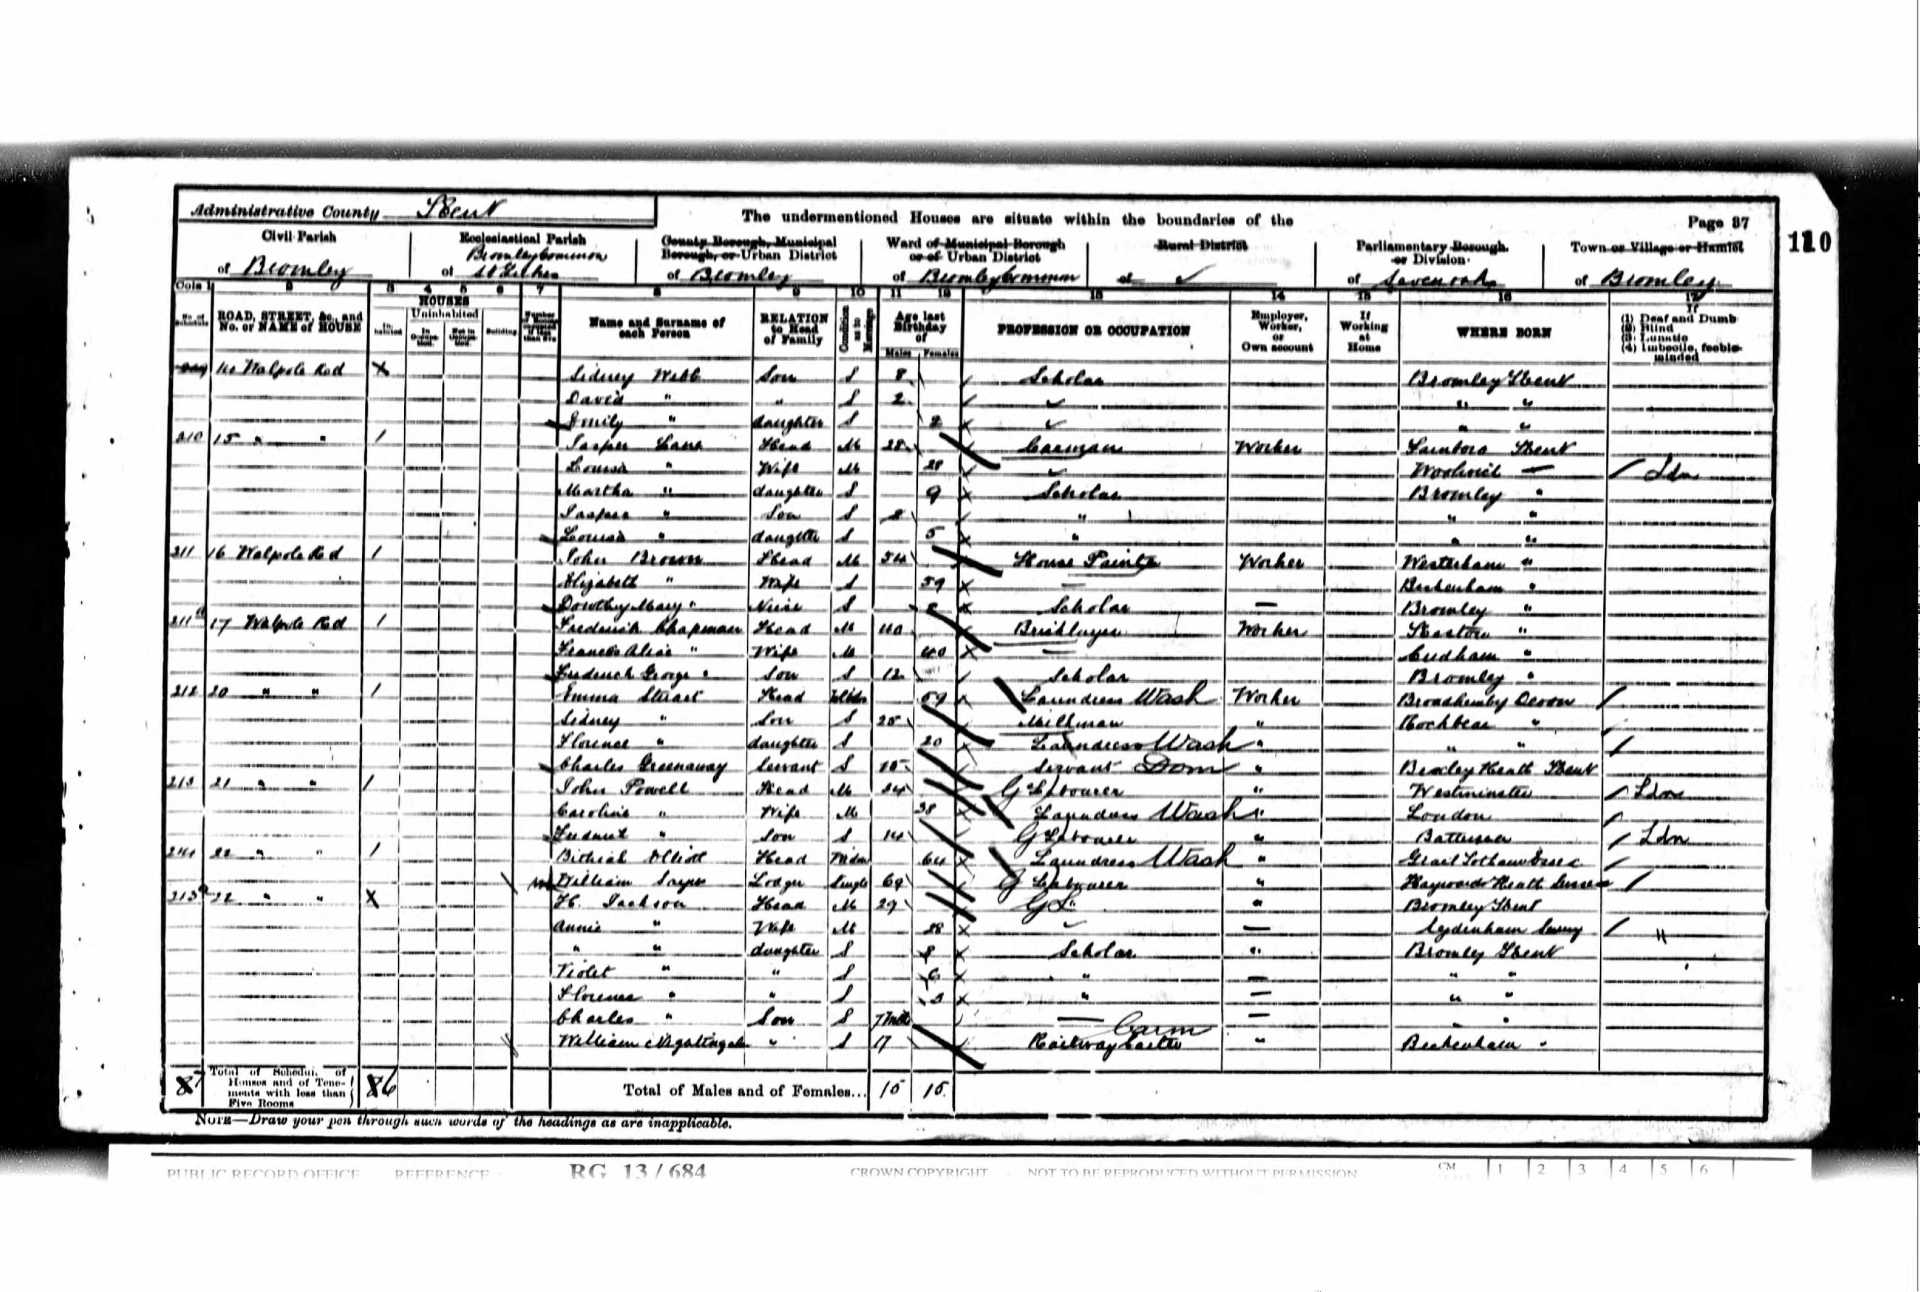 Administrative County Kent
The undermentioned Houses are situate within the boundaries of the
Page 37
110
Civil Parish
of Bromley
Ecclesiastical Parish
Bromley Common
of
County Borough, Municipal Borough, or Urban District
of Bromley
Ward of Municipal Borough or of Urban District
of Bromley Common
Rural District
of
Parliamentary Borough or Division
of Sevenoaks
Town or Village or Hamlet
of Bromley
Cols 1 2 3 4 5 6 7 8 9 10 11 12 13 14 15 16 17
No. of Schedule
ROAD, STREET, &c., and No. or NAME of HOUSE
HOUSES
Inhabited
Uninhabited
In Occupation.
Not in Occupation.
Building
Name and Surname of each Person
RELATION to Head of Family
Condition as to Marriage
Age last Birthday of
Males Females
PROFESSION OR OCCUPATION
Employer, Worker, or Own account
If Working at Home
WHERE BORN
If (1) Deaf and Dumb (2) Blind (3) Lunatic (4) Imbecile, feeble-minded
209 14 Walpole Rd X Sidney Webb Son S 8 Scholar Bromley Kent
David " " S 2 " "
Emily " daughter S 2 " "
210 15 " " 1 Jasper Lane Head M 28 Carman Worker Kent
Louisa " Wife M 28 Woolwich Ldn
Martha " daughter S 9 Scholar Bromley "
Jasper " Son S 8 " " "
Louisa " daughter S 5 " " "
211 16 Walpole Rd 1 John Brown Head M 54 House Painter Worker Westerham "
Elizabeth " Wife S 59 Beckenham "
Dorothy Mary " Niece S 8 Scholar Bromley "
211a 17 Walpole Rd 1 Frederick Chapman Head M 40 Bricklayer Worker Keston "
Frances Alice " Wife M 40 Cudham "
Frederick George " Son S 12 Scholar Bromley "
212 20 " " 1 Emma Stuart Head Widow 59 Laundress Wash Worker Broadhemby Devon
Sidney " Son S 25 Milkman " Rockbear "
Florence " daughter S 20 Laundress Wash " " "
Charles Greenaway Servant S 15 Servant Dom " Bexley Heath Kent
213 21 " " 1 John Powell Head M 24 G Labourer " Westminster Ldn
Caroline " Wife M 38 Laundress Wash " London
Frederick " Son S 14 G Labourer " Battersea Ldn
214 22 " " 1 Bithiah Elliott Head Widow 64 Laundress Wash " Great Totham Essex
William Lodger Single 69 G Labourer " Haywards Heath Sussex
213a 22 " " X H. Jackson Head M 29 G L " " Bromley Kent
Annie " Wife M 28 Sydenham Surrey
" " daughter S 8 Scholar " Bromley Kent
Violet " " S 6 " " "
Florence " " S 3 " " "
Charles " Son S 7 mths "
William Nightingale " S 17 Railway Carter Carm " Beckenham "
87 Total of Schedules of Houses and of Tenements with less than Five Rooms 86 Total of Males and of Females... 15 15
NOTE—Draw your pen through such words of the headings as are inapplicable.
PUBLIC RECORD OFFICE REFERENCE RG 13 / 684 CROWN COPYRIGHT NOT TO BE REPRODUCED WITHOUT PERMISSION CM 1 2 3 4 5 6